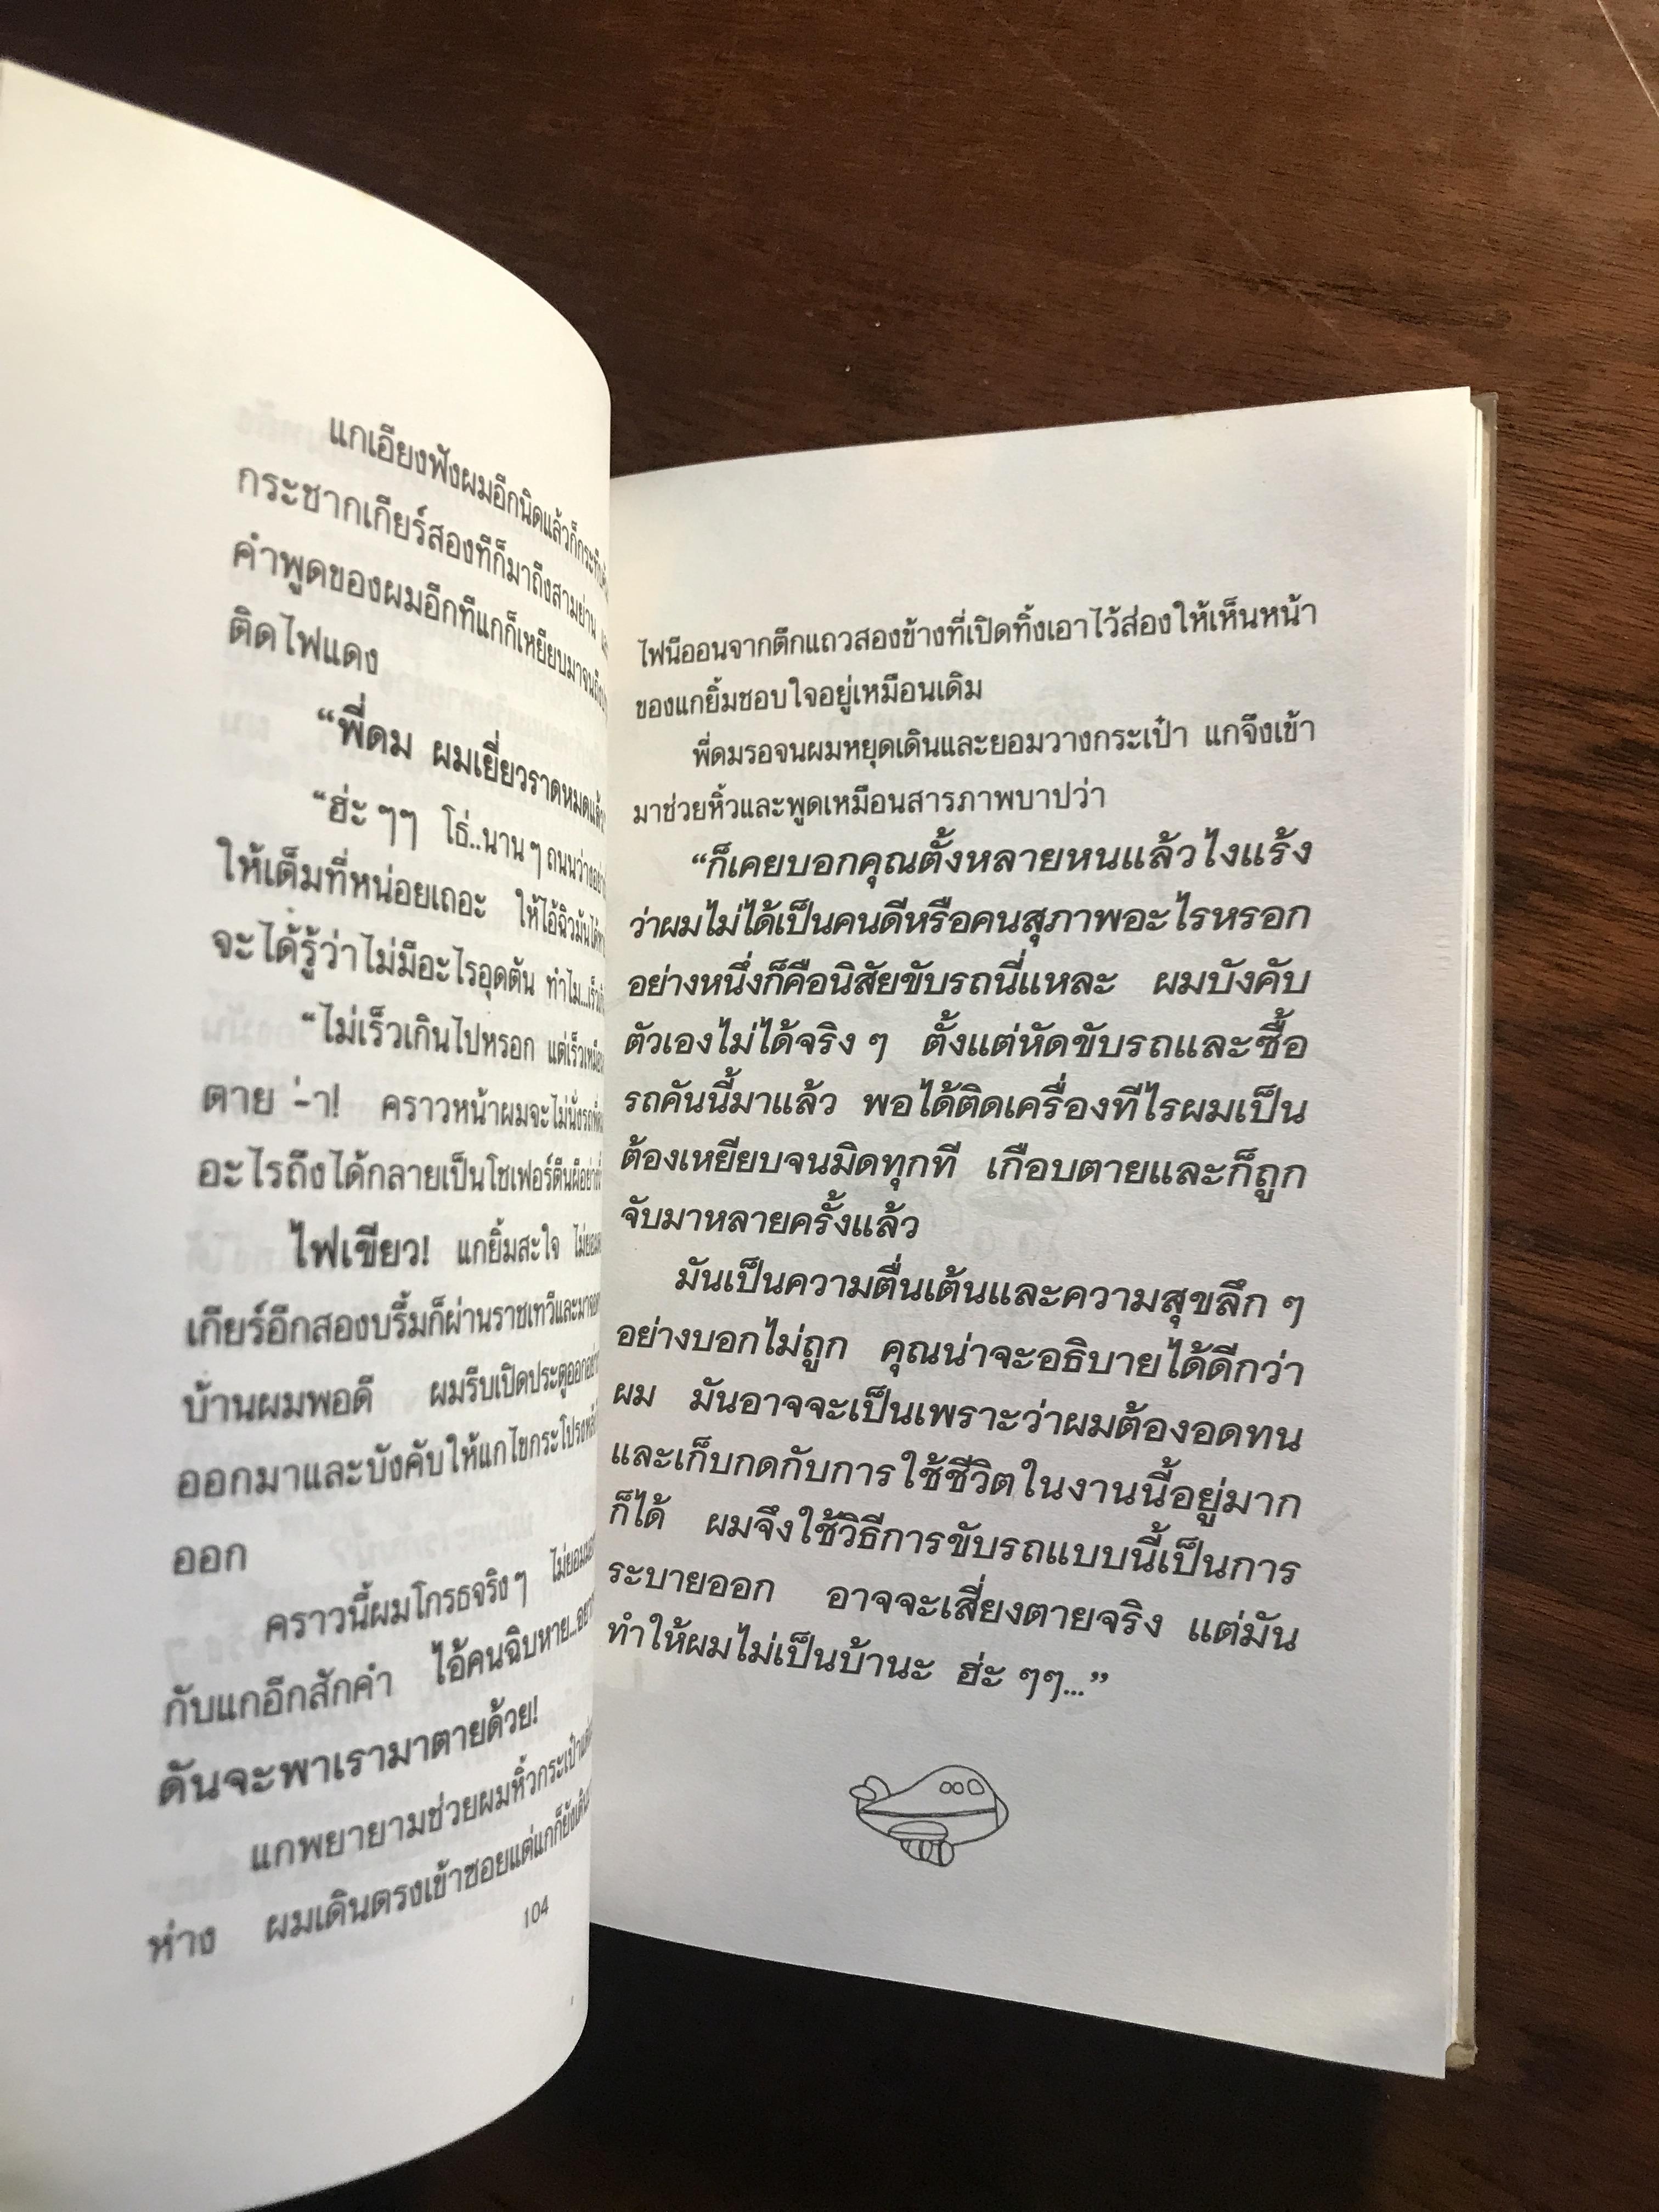 แกเอียงฟังผมอีกนิดแล้วก็กระทืบ
กระชากเกียร์สองทีก็มาถึงสามย่าน
คำพูดของผมอีกทีแกก็เหยียบมาจนถึง
ติดไฟแดง
“พี่ดม ผมเยี่ยวราดหมดแล้ว
“ฮ่ะ ๆๆ โธ่..นาน ๆ ถนนว่างอย่าง
ให้เต็มที่หน่อยเถอะ ให้ไอ้ฉิวมันได้
จะได้รู้ว่าไม่มีอะไรอุดตัน ทำไม...เร็ว
“ไม่เร็วเกินไปหรอก แต่เร็วเหมือน
ตาย –่า! คราวหน้าผมจะไม่นั่งรถ
อะไรถึงได้กลายเป็นโชเฟอร์ตีนผีอย่าง
ไฟเขียว! แกยิ้มสะใจ ไม่ยอม
เกียร์อีกสองบรื้มก็ผ่านราชเทวีและมา
บ้านผมพอดี ผมรีบเปิดประตูออก
ออกมาและบังคับให้แกไขกระโปรง
ออก
คราวนี้ผมโกรธจริง ๆ ไม่ยอม
กับแกอีกสักคำ ไอ้คนฉิบหาย...
ดันจะพาเรามาตายด้วย!
แกพยายามช่วยผมหิ้วกระเป๋า
ห่าง ผมเดินตรงเข้าซอยแต่แกก็ยังเดิน
104
ไฟนีออนจากตึกแถวสองข้างที่เปิดทิ้งเอาไว้ส่องให้เห็นหน้า
ของแกยิ้มชอบใจอยู่เหมือนเดิม
พี่ดมรอจนผมหยุดเดินและยอมวางกระเป๋า แกจึงเข้า
มาช่วยหิ้วและพูดเหมือนสารภาพบาปว่า
“ก็เคยบอกคุณตั้งหลายหนแล้วไงแร้ง
ว่าผมไม่ได้เป็นคนดีหรือคนสุภาพอะไรหรอก
อย่างหนึ่งก็คือนิสัยขับรถนี่แหละ ผมบังคับ
ตัวเองไม่ได้จริง ๆ ตั้งแต่หัดขับรถและซื้อ
รถคันนี้มาแล้ว พอได้ติดเครื่องทีไรผมเป็น
ต้องเหยียบจนมิดทุกที เกือบตายและก็ถูก
จับมาหลายครั้งแล้ว
มันเป็นความตื่นเต้นและความสุขลึก ๆ
อย่างบอกไม่ถูก คุณน่าจะอธิบายได้ดีกว่า
ผม มันอาจจะเป็นเพราะว่าผมต้องอดทน
และเก็บกดกับการใช้ชีวิตในงานนี้อยู่มาก
ก็ได้ ผมจึงใช้วิธีการขับรถแบบนี้เป็นการ
ระบายออก อาจจะเสี่ยงตายจริง แต่มัน
ทำให้ผมไม่เป็นบ้านะ ฮ่ะ ๆๆ...”